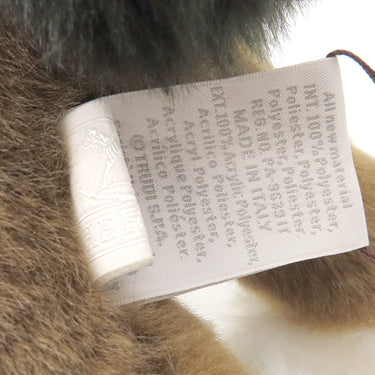 All new material
INT. 100% Polyester,
Poliester, Polyester,
Polyester, Poliester
REG NO. PA-9639 IT
MADE IN ITALY
EXT. 100% Acrilic Polyester,
Acrilico Poliester,
Acryl Polyester,
Acrylique Polyester,
Acrilico Poliester.
(C) TRUDI S.P.A.